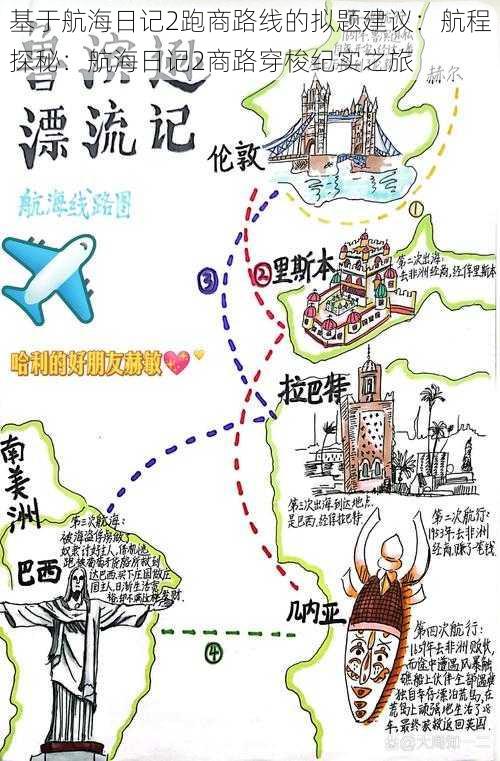 基于航海日记2跑商路线的拟题建议：航程
探秘：航海日记2商路穿梭纪实之旅
鲁滨逊
漂流记
航海线路图
赫尔
伦敦
①
第二次出海:
去非洲经商,经停里斯本
③
②里斯本
哈利的好朋友赫敏
拉巴特
南美洲
巴西
第三次航海:
被海盗俘房做了
奴隶
第三次出海到达地点
是巴西,经停拉巴特
第二次航行:
1653年去非洲
经商,赚了笔钱
几内亚
④
第四次航行:
1659年去非洲贩奴,
而途中遭遇风暴触
礁船上伙伴全部遇难
独自幸存漂泊荒岛,在
荒岛上顽强地生活了28
年,最终获救返回英国.